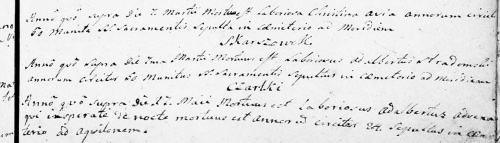 Annô quô supra die 7 Martii Mortua est Laboriosa Christina avia annorum circit
60 Munita SS. Sacramentis Sepulta in Cæmeterio ad Meridiem
Skarszewek
Annô quô Supra die Martii Mortuus est Laboriosus Adalbertus
annorum Circiter 60 Munitus SS. Sacramentis Sepultus in Cæmeterio ad Meridiem
Czartki
Annô quô Supra die 17 Maii Mortuus est Laboriosus Adalbertus advena
qui insperate de nocte mortuus est annorum circiter 24. Sepultus in Cæme
terio ad aquilonem.